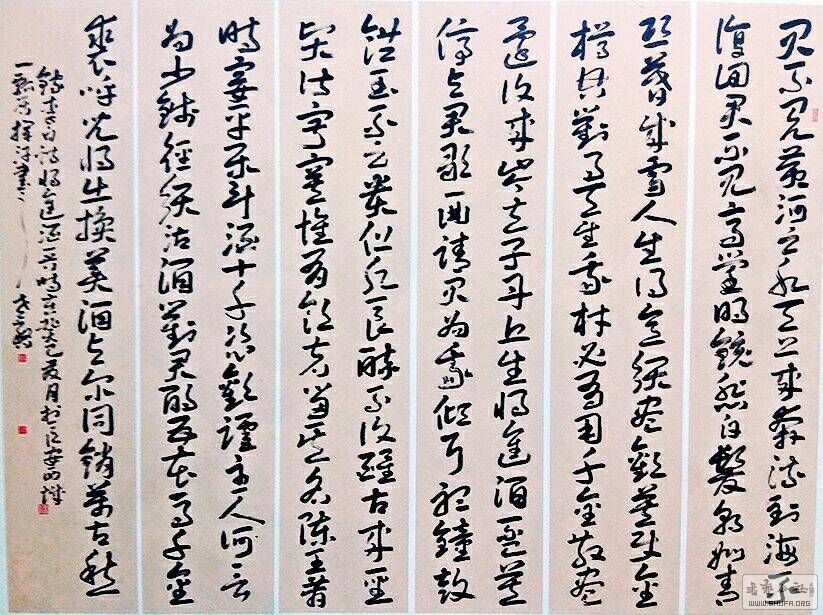 君不見黃河之水天上來奔流到海不
復回君不見高堂明鏡悲白髮朝如青
絲暮成雪人生得意須盡歡莫使金
樽空對月天生我材必有用千金散盡
還復來岑夫子丹丘生將進酒杯莫
停與君歌一曲請君為我傾耳聽鐘鼓
饌玉不足貴但願長醉不復醒古來聖
賢皆寂寞惟有飲者留其名陳王昔
時宴平樂斗酒十千恣歡謔主人何言
為少錢徑須沽酒對君酌五花馬千金
裘呼兒將出換美酒與爾同銷萬古愁
錄李白詩將進酒一首時在癸巳夏月於長安
WWW.SHUFA.ORG